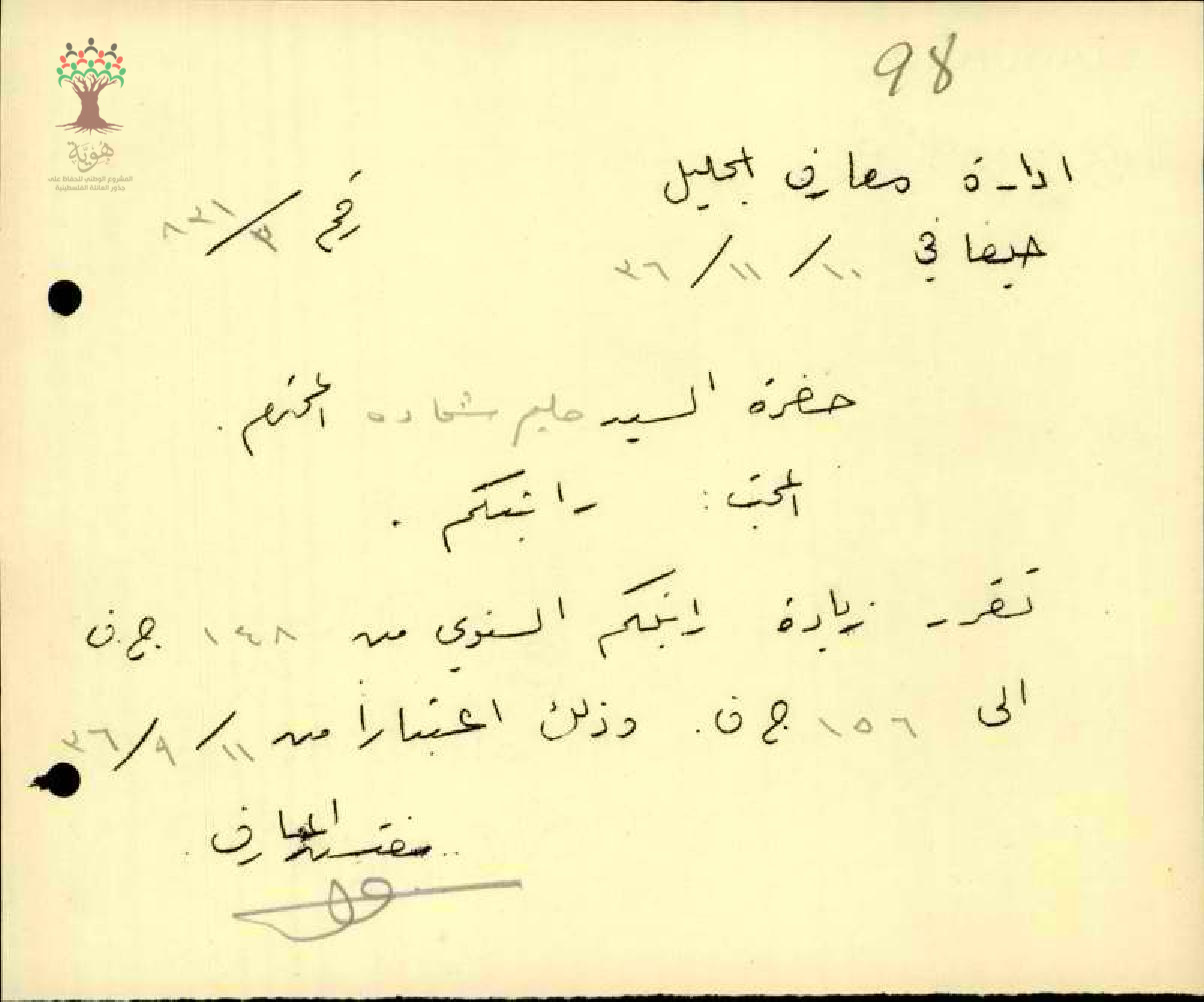 98
هُوِيَّة
المشروع الوطني للحفاظ على
جذور العائلة الفلسطينية
ادارة معارف الجليل
رقم ٣/٨٣١
حيفا في ١٠/١١/٣٦
حضرة السيد حليم شحاده المحترم.
المبحث: راتبكم.
تقرر زيادة راتبكم السنوي من ١٤٨ ج.ف
الى ١٥٦ ج ف. وذلك اعتباراً من ١١/٩/٣٦
مفتش المعارف